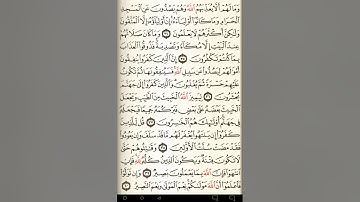 وَمَا لَهُمْ أَلَّا يُعَذِّبَهُمُ ٱللَّهُ وَهُمْ يَصُدُّونَ عَنِ ٱلْمَسْجِدِ
ٱلْحَرَامِ وَمَا كَانُوٓا۟ أَوْلِيَآءَهُۥٓ إِنْ أَوْلِيَآؤُهُۥٓ إِلَّا ٱلْمُتَّقُونَ
وَلَٰكِنَّ أَكْثَرَهُمْ لَا يَعْلَمُونَ ٣٤ وَمَا كَانَ صَلَاتُهُمْ
عِندَ ٱلْبَيْتِ إِلَّا مُكَآءً وَتَصْدِيَةً فَذُوقُوا۟ ٱلْعَذَابَ
بِمَا كُنتُمْ تَكْفُرُونَ ٣٥ إِنَّ ٱلَّذِينَ كَفَرُوا۟ يُنفِقُونَ
أَمْوَٰلَهُمْ لِيَصُدُّوا۟ عَن سَبِيلِ ٱللَّهِ فَسَيُنفِقُونَهَا ثُمَّ تَكُونُ
عَلَيْهِمْ حَسْرَةً ثُمَّ يُغْلَبُونَ وَٱلَّذِينَ كَفَرُوٓا۟ إِلَىٰ جَهَنَّمَ
يُحْشَرُونَ ٣٦ لِيَمِيزَ ٱللَّهُ ٱلْخَبِيثَ مِنَ ٱلطَّيِّبِ وَيَجْعَلَ
ٱلْخَبِيثَ بَعْضَهُۥ عَلَىٰ بَعْضٍ فَيَرْكُمَهُۥ جَمِيعًا فَيَجْعَلَهُۥ
فِى جَهَنَّمَ أُو۟لَٰٓئِكَ هُمُ ٱلْخَٰسِرُونَ ٣٧ قُل لِّلَّذِينَ
كَفَرُوٓا۟ إِن يَنتَهُوا۟ يُغْفَرْ لَهُم مَّا قَدْ سَلَفَ وَإِن يَعُودُوا۟
فَقَدْ مَضَتْ سُنَّتُ ٱلْأَوَّلِينَ ٣٨ وَقَٰتِلُوهُمْ حَتَّىٰ
لَا تَكُونَ فِتْنَةٌ وَيَكُونَ ٱلدِّينُ كُلُّهُۥ لِلَّهِ فَإِنِ
ٱنتَهَوْا۟ فَإِنَّ ٱللَّهَ بِمَا يَعْمَلُونَ بَصِيرٌ ٣٩ وَإِن تَوَلَّوْا۟
فَٱعْلَمُوٓا۟ أَنَّ ٱللَّهَ مَوْلَىٰكُمْ نِعْمَ ٱلْمَوْلَىٰ وَنِعْمَ ٱلنَّصِيرُ ٤٠